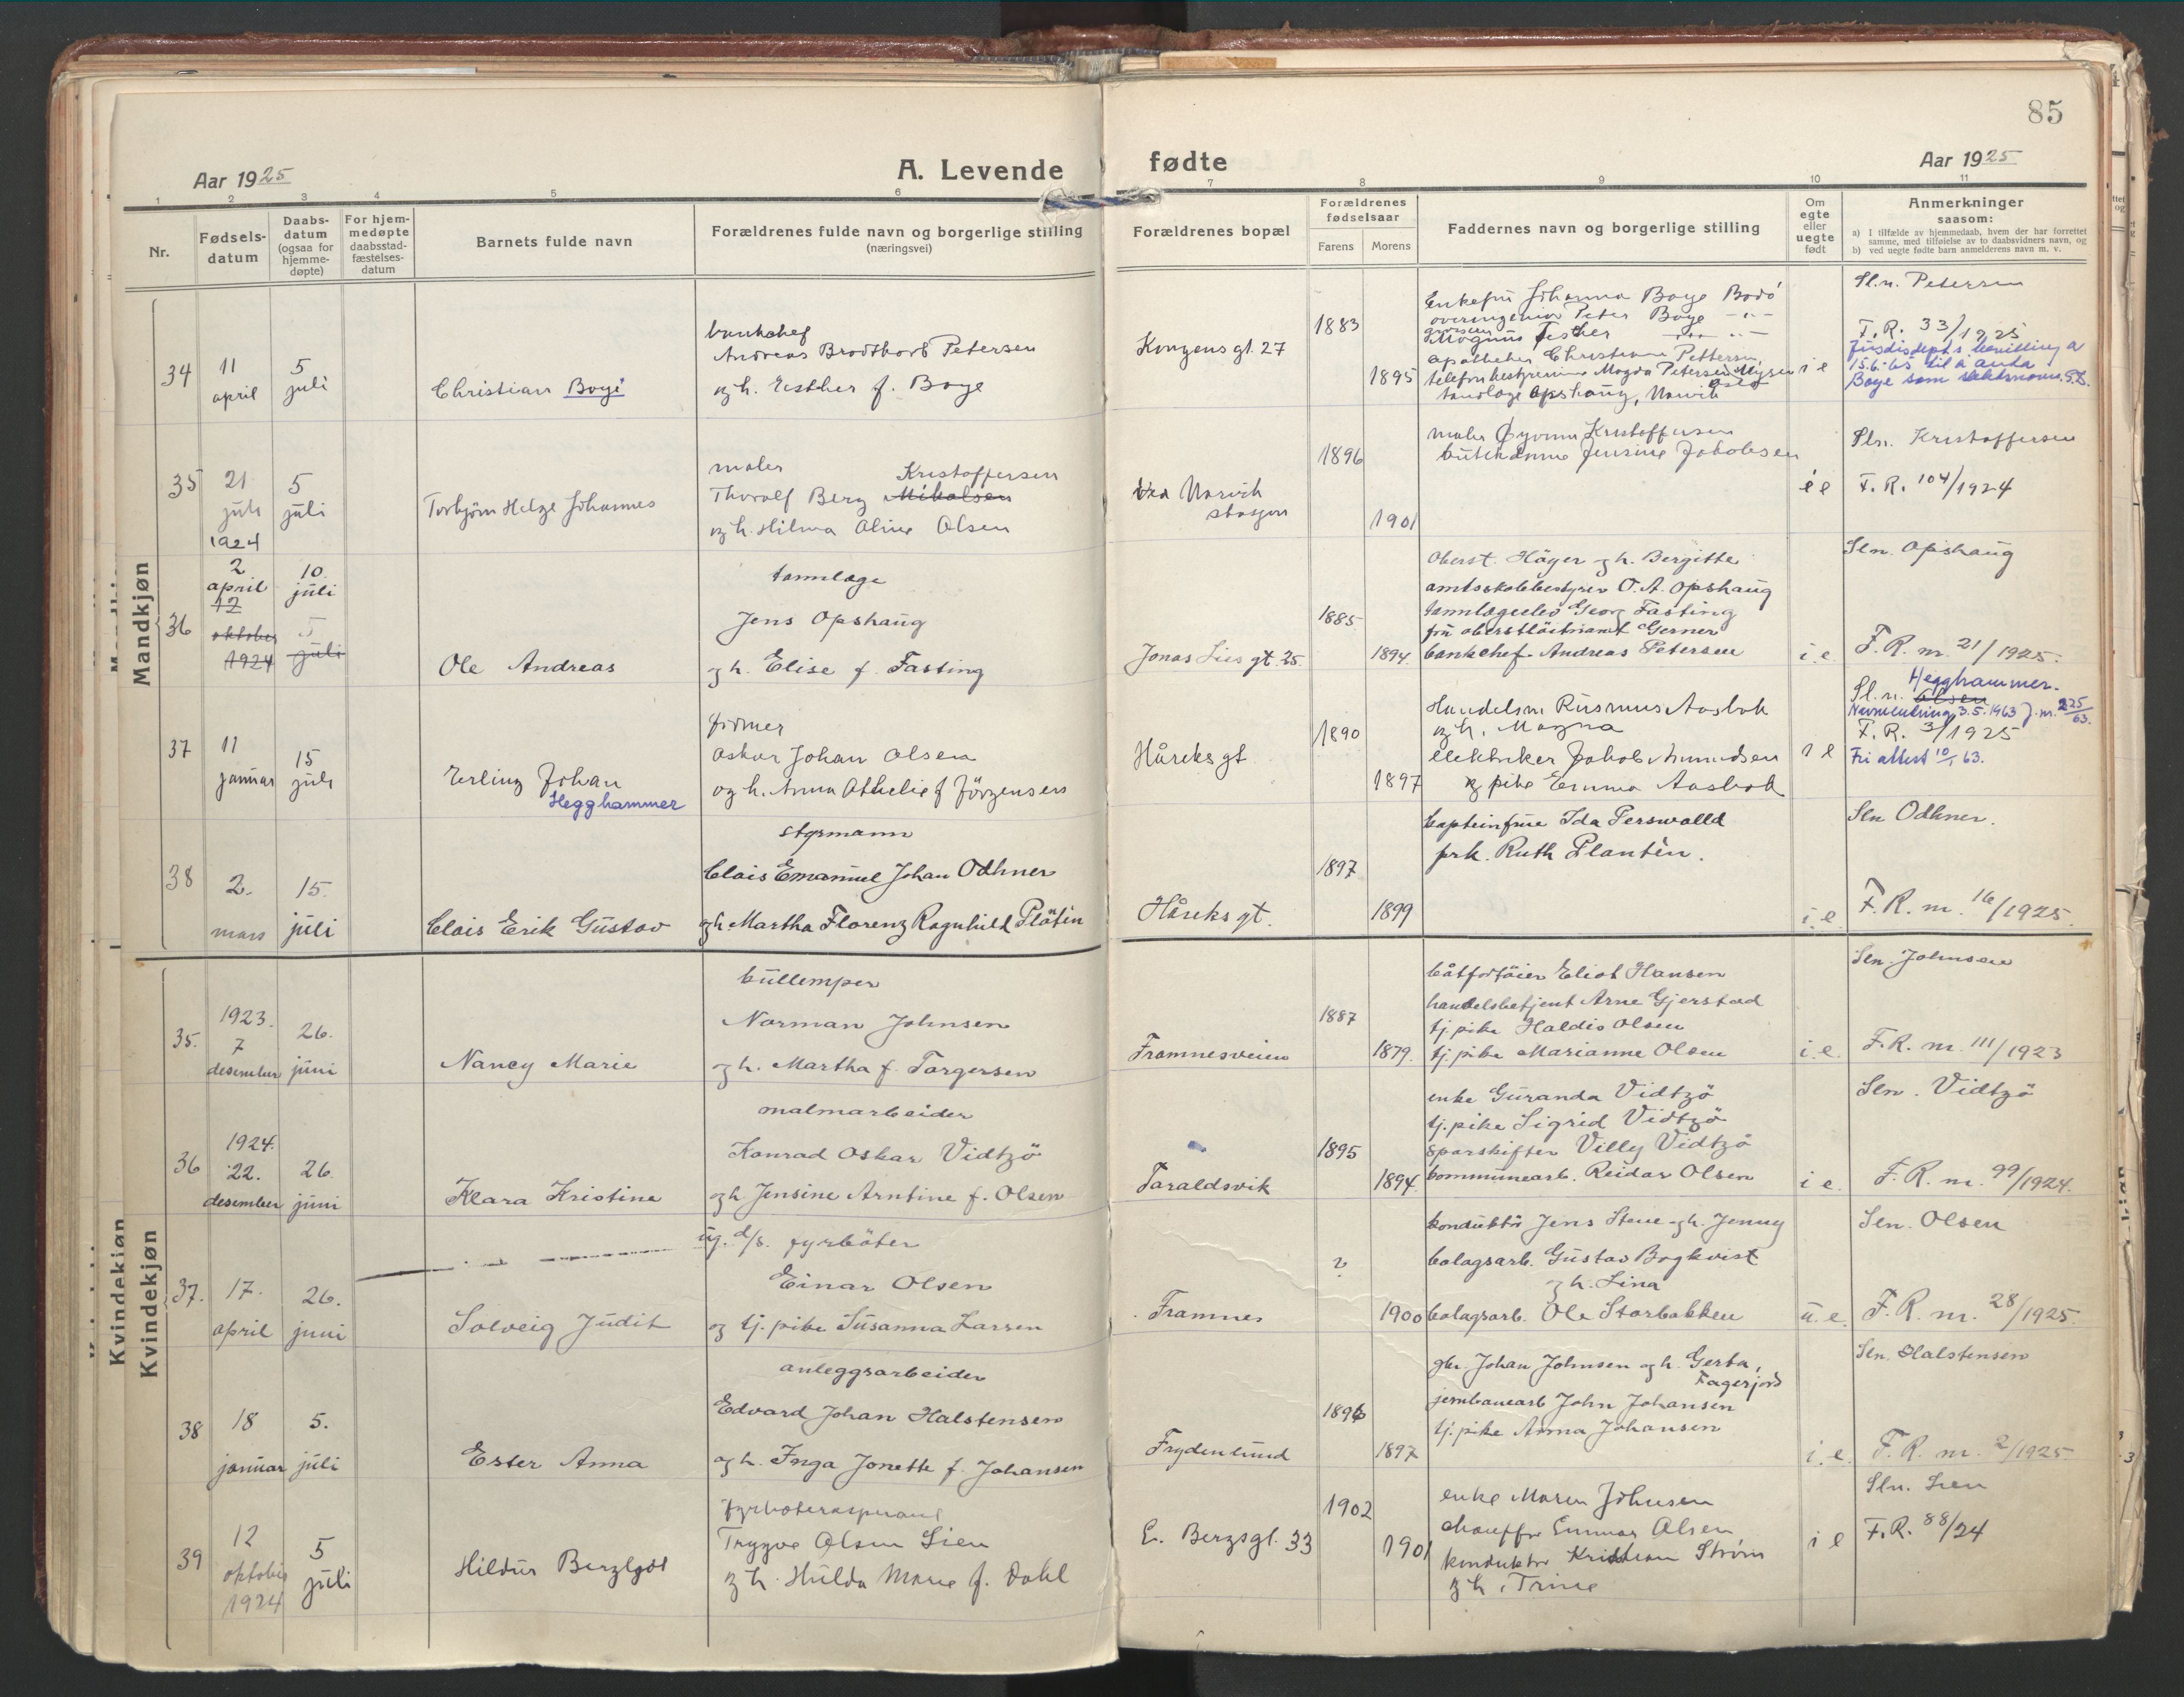 85
Aar 1925
A. Levende fødte
Aar 1925
1 2 3 4 5 6 7 8 9 10 11
Nr.
Fødsels-
datum
Daabs-
datum
(ogsaa for
hjemme-
døpte)
For hjem-
medøpte
daabsstad-
fæstelses-
datum
Barnets fulde navn
Forældrenes fulde navn og borgerlige stilling
(næringsvei)
Forældrenes bopæl
Forældrenes
fødselsaar
Farens
Morens
Faddernes navn og borgerlige stilling
Om
egte
eller
uegte
født
Anmerkninger
saasom:
a) I tilfælde av hjemmedaab, hvem der har forrettet
samme, med tilføielse av to daabsvidners navn, og
b) ved uegte fødte barn anmelderens navn m. v.
Mandkjøn
34
11
april
5
juli
Christian Boye
bankchef
Andreas Brodtkorb Petersen
og h. Esther f. Boye
Kongens gt. 27
1883
1895
Enkefru Johanna Boye Bodö
overingeniør Peter Boye
Magnus
apotheker Christian Pettersen,
telefonbestyrerinne Magda Petersen Mysen
tandlæge Opshaug, Narvik
i e
Sl.n. Petersen
F.R. 33/1925
Jusdisdepts bevilling av
15.6.-65 til å anta
Boye som slektsnavn. S.L.
35
21
juli
1924
5
juli
Torbjørn Helge Johannes
maler
Kristoffersen
Thoralf Berg Mikalsen
og h. Hilma Oline Olsen
Ved Narvik
stasjon
1896
1901
maler Øyvinn Kristoffersen
butikdame Jensine Jakobsen
i e
Sln. Kristoffersen
F.R. 104/1924
36
2
april
12
oktober
1924
10.
juli
5
juli
Ole Andreas
tannlæge
Jens Opshaug
og h. Elise f. Fasting
Jonas Lies gt. 25.
1885.
1894.
Oberst. Häger og h. Bergitte
amtsskolebestyrer O. A. Opshaug
tannlægeelev Georg Fasting
fru oberstløitnamt Gerner
bankchef Andreas Petersen
i. e.
Sln. Opshaug
F. R. nr. 21/1925.
37
11
januar
15
juli
Erling Johan
Hegghammer
firmer
Oskar Johan Olsen
og h. Anna Athelie f Jörgensen
Håreks gt
1890
1897
Handelsm Rasmus Aasbak
og h. Magna
elektriker Jakob Amundsen
og pike Emma Aasbak
i e
Hegghammer.
Sl. n. Olsen
Navneendring 3.5.1963 J. nr. 225/63.
F. R. 3/1925
Fri attest 10/1 63.
38
2.
mars
15.
juli
Clais Erik Gustav
styrmann
Clais Emanuel Johan Odhner
og h. Martha Florenz Ragnhild Plätin
Håreks gt.
1897
1899
kapteinfrue Ida Perswalld
frk. Ruth Plantèn.
i. e.
Sln Odhner.
F. R. nr. 16/1925.
Kvindekjøn
35.
1923.
7
desember
26.
juni
Nancy Marie
bullemper
Norman Johnsen
og h. Martha f. Torgersen
Framnesveien
1887
1879.
båtfortöier Eliot Hansen
handelsbetjent Arne Gjerstad
tj. pike Haldis Olsen
tj. pike Marianne Olsen
i. e.
Sln. Johnsen
F. R. nr. 111/1923
36
1924.
22.
desember
26.
juni
Klara Kristine
malmarbeider
Konrad Oskar Vidtzö
og h Jensine Arntine f. Olsen
Taraldsvik
1895
1894.
enke Guranda Vidtzö
tj. pike Sigrid Vidtzö
sporskifter Villy Vidtzö
kommunearb. Reidar Olsen
i e.
Sln. Vidtzö
F. R. nr. 99/1924.
37.
17.
april
26.
juni
Solveig Judit
ug. d/s. fyrböter
Einar Olsen
og tj. pike Susanna Larsen
Framnes
?
1900
konduktör Jens Stene og h. Jenny
bolagsarb. Gustav Bogkvist
og h. Lina
bolagsarb. Ole Storbakken
u. e.
Sln. Olsen
F. R. nr. 28/1925.
38
18
januar
5.
juli
Ester Anna
anleggsarbeider
Edvard Johan Halstensen
og h. Inga Jonette f. Johansen
Frydenlund
1896
1897
gbr. Johan Johnsen og h. Gerta,
Fagerjord
jernbanearb John Johansen
tj. pike Anna Johansen
i. e.
Sln. Halstensen
F. R. nr. 2/1925.
39
12
oktober
1924
5
juli
Hildur Berglyot
fyrbøteraspirant
Trygve Olsen Lien
og h. Hulda Marie f. Dahl
E. Bergsgt. 33
1902
1901
enke Maren Johnsen
chauffør Gunnar Olsen
konduktør Kristian Strøm
og h. Trine
i e
Sln. Lien
F.R. 88/24